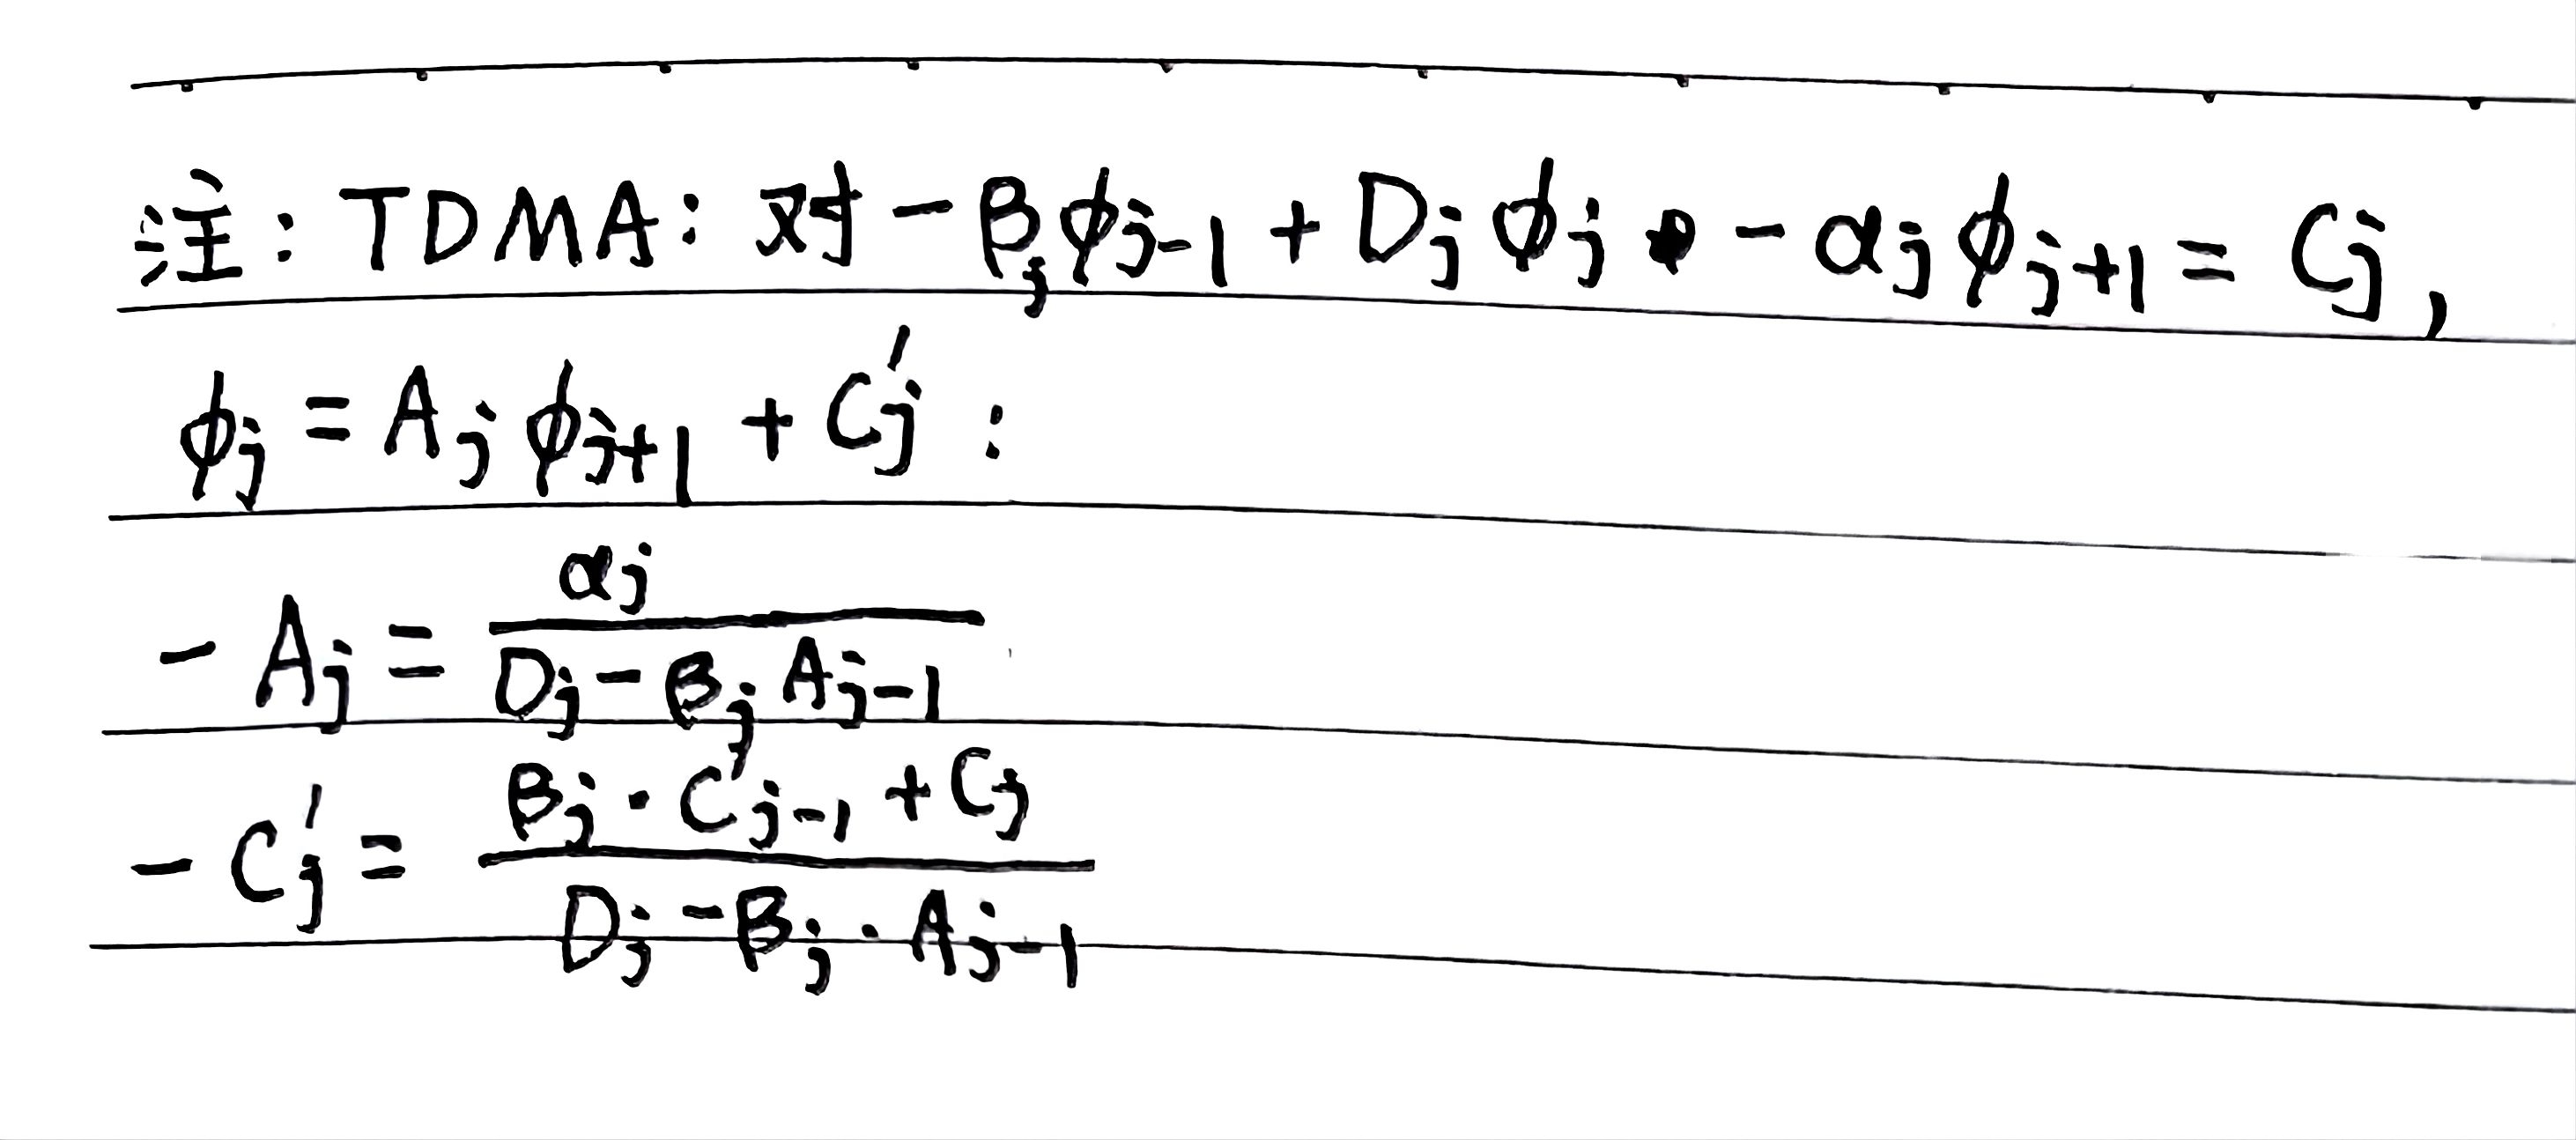 注：TDMA：对 -βⱼϕⱼ₋₁ + Dⱼϕⱼ - αⱼϕⱼ₊₁ = Cⱼ，
ϕⱼ = Aⱼϕⱼ₊₁ + C'ⱼ：
- Aⱼ = αⱼ / (Dⱼ - βⱼAⱼ₋₁)
- C'ⱼ = (βⱼ·C'ⱼ₋₁ + Cⱼ) / (Dⱼ - βⱼ·Aⱼ₋₁)